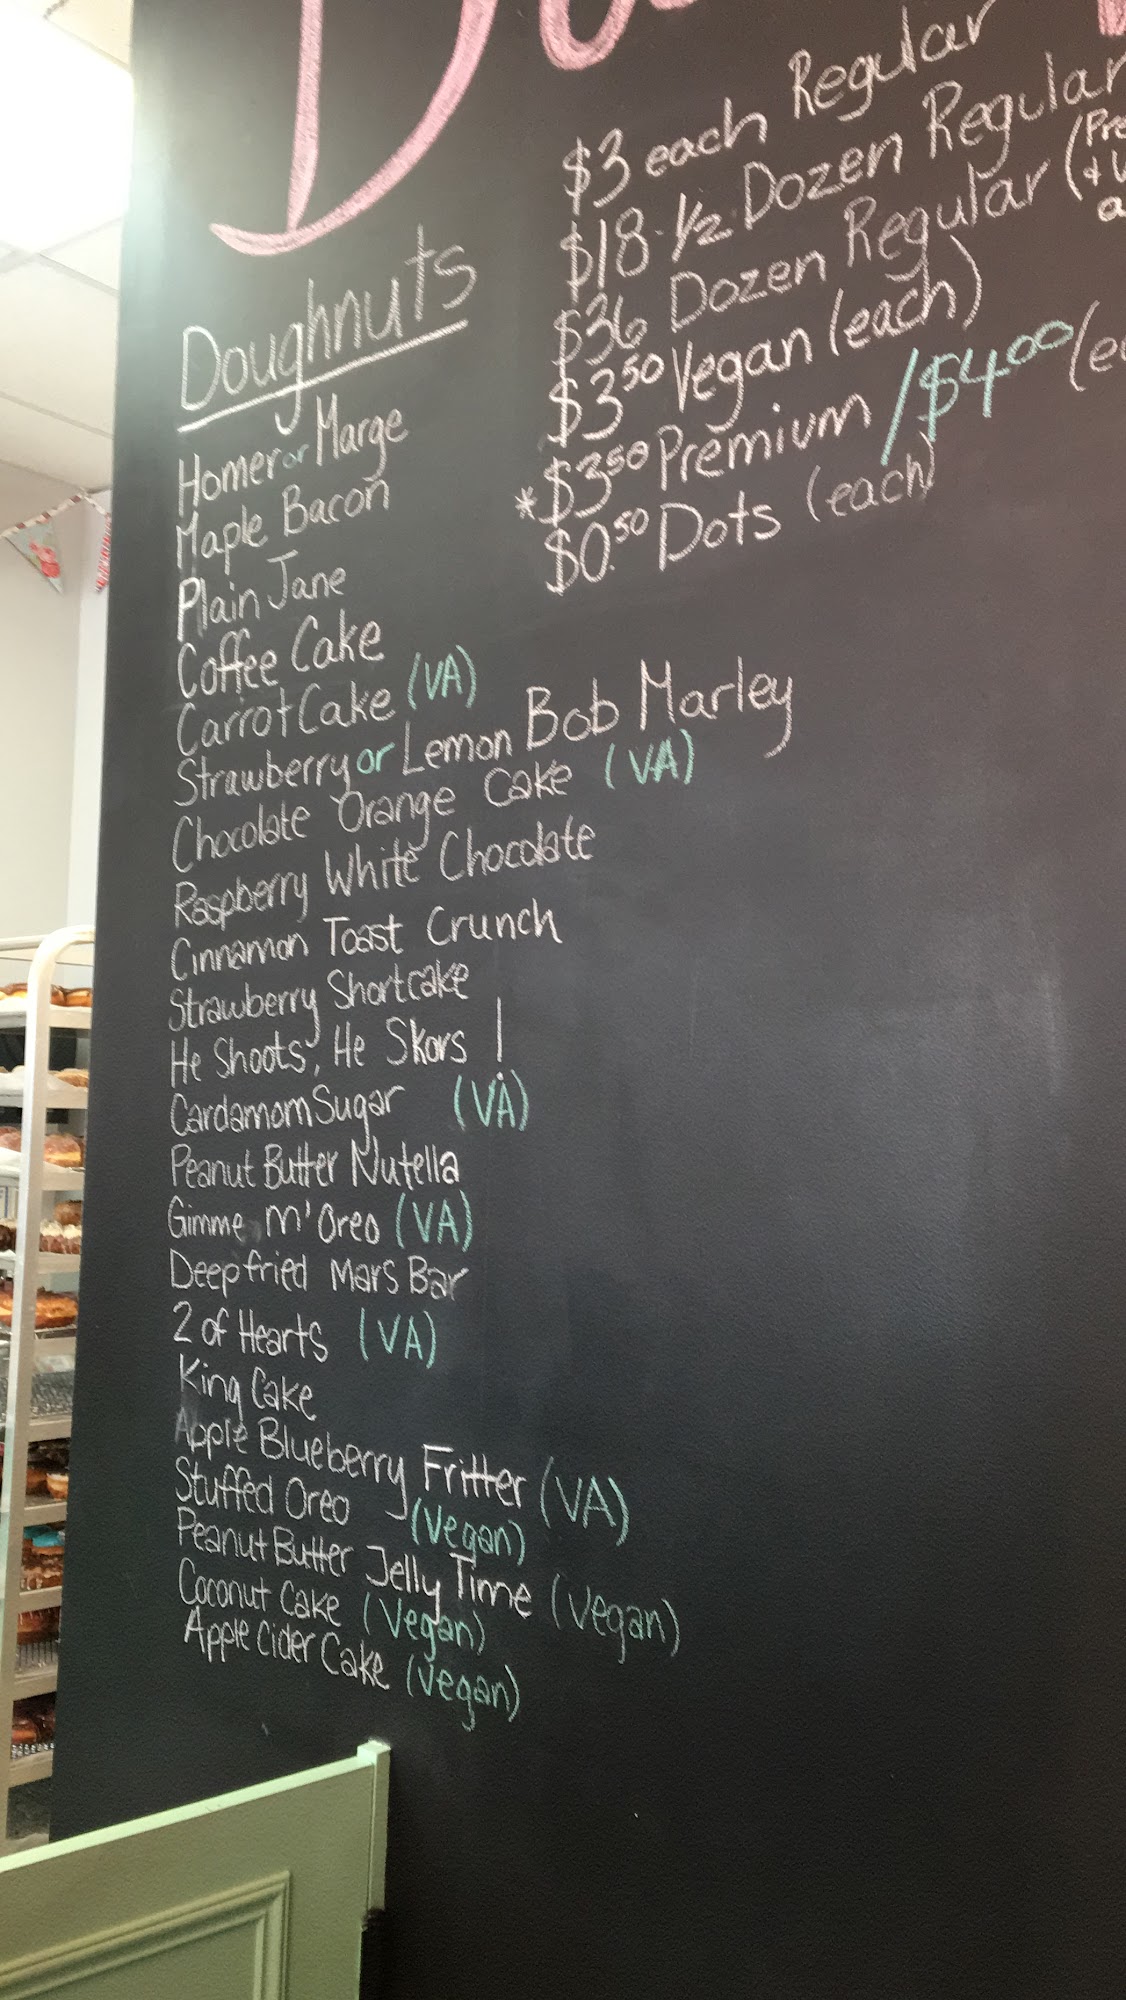 $3 each Regular
$18 - 1/2 Dozen Regular
$36 Dozen Regular
$3.50 Vegan (each)
*$3.50 Premium /$4.00
$0.50 Dots (each)
Doughnuts
Homer or Marge
Maple Bacon
Plain Jane
Coffee Cake
Carrot Cake (VA)
Strawberry or Lemon Bob Marley
Chocolate Orange Cake (VA)
Raspberry White Chocolate
Cinnamon Toast Crunch
Strawberry Shortcake
He Shoots, He Skors!
Cardamom Sugar (VA)
Peanut Butter Nutella
Gimme M'Oreo (VA)
Deepfried Mars Bar
2 of Hearts (VA)
King Cake
Apple Blueberry Fritter (VA)
Stuffed Oreo (Vegan)
Peanut Butter Jelly Time (Vegan)
Coconut Cake (Vegan)
Apple Cider Cake (Vegan)